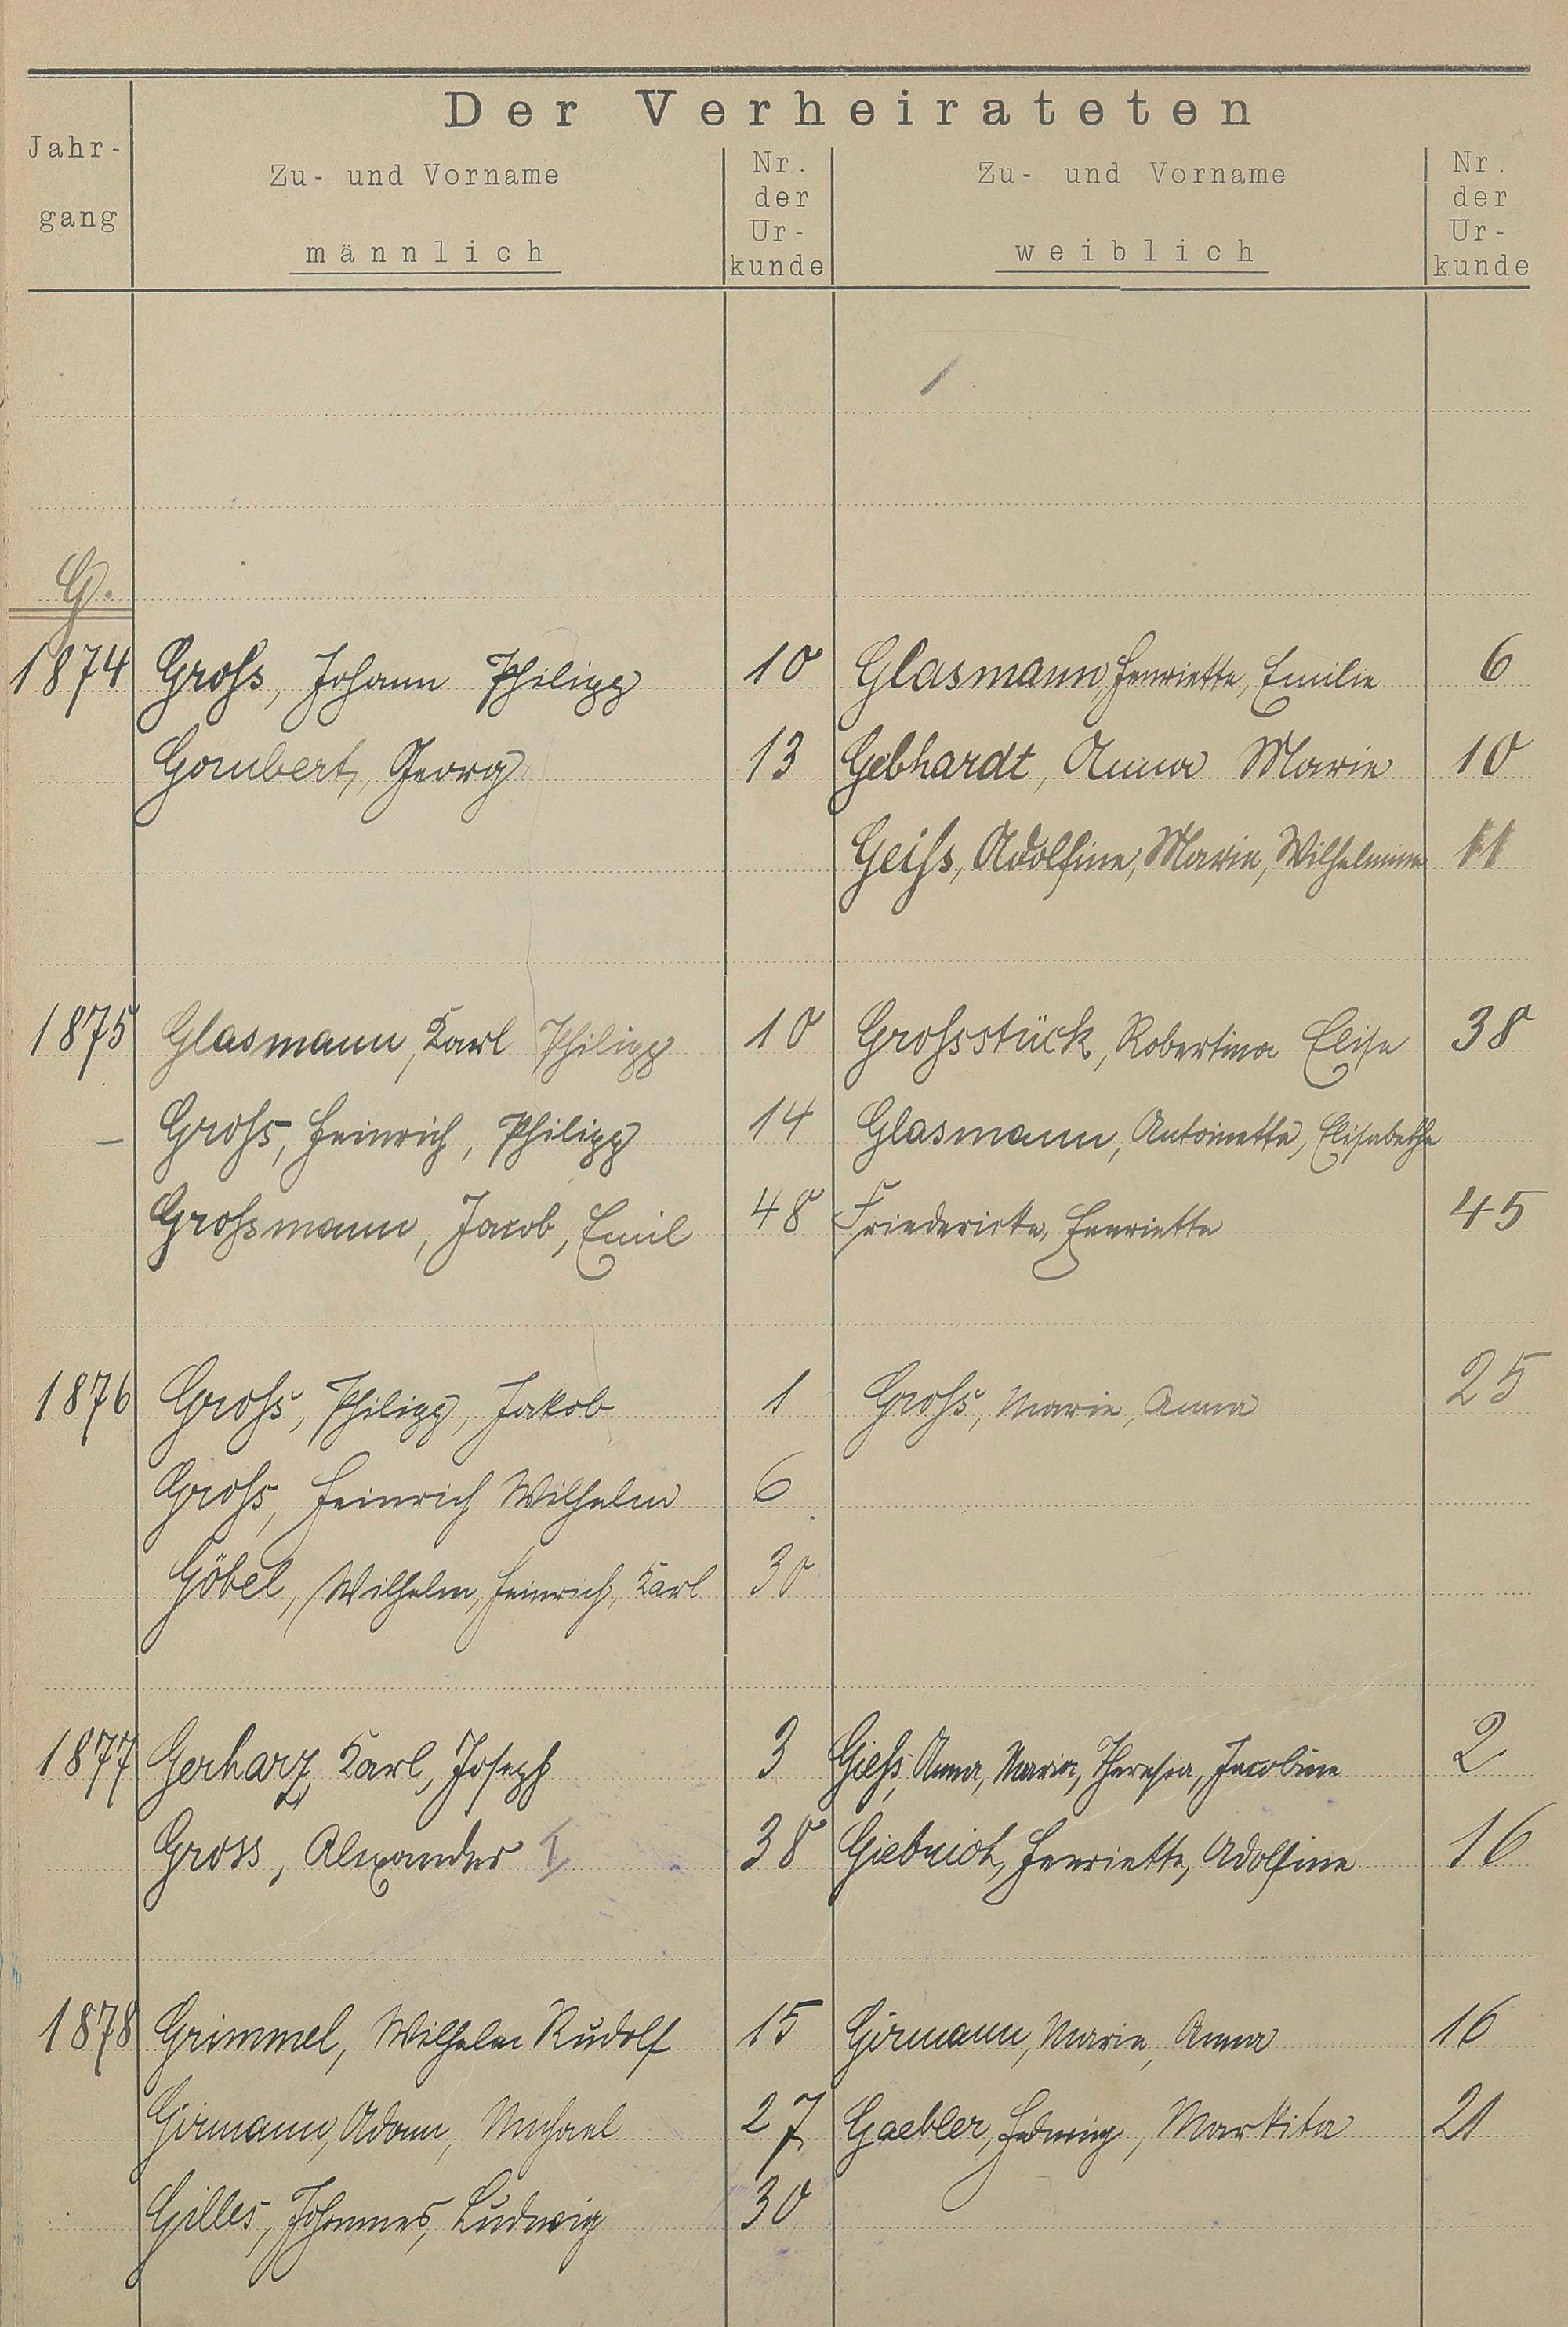 Der Verheirateten
Jahr-
gang
Zu- und Vorname
männlich
Nr.
der
Ur-
kunde
Zu- und Vorname
weiblich
Nr.
der
Ur-
kunde
G.
1874 Groſs, Johann Philipp 10 Glasmann, Henriette, Emilie 6
Gombert, Georg 13 Gebhardt, Anna Marie 10
Geiſs, Adolfine, Marie, Wilhelmine 11
1875 Glasmann, Karl Philipp 10 Groſsstück, Robertina Elise 38
– Groſs, Heinrich, Philipp 14 Glasmann, Antoinette, Elisabethe
Groſsmann, Jacob, Emil 48 Friedericke, Henriette 45
1876 Groſs, Philipp, Jakob 1 Groſs, Marie, Anna 25
Groſs, Heinrich Wilhelm 6
Göbel, Wilhelm, Heinrich, Karl 30
1877 Gerharz, Karl, Joseph 3 Gieſs, Anna, Maria, Theresia, Jacobine 2
Gross, Alexander I 38 Henriette, Adolfine 16
1878 Grimmel, Wilhelm Rudolf 15 Girmann, Marie, Anna 16
Girmann, Adam, Michael 27 Gaebler, Hedwig, Markita 21
Gilles, Johannes, Ludwig 30